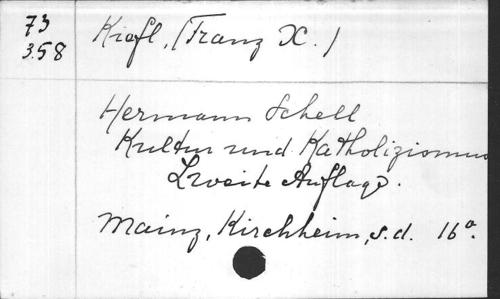 73
358
Kiefl, (Franz X.)
Hermann Schell
Kultur und Katholizismus
Zweite Auflage.
Mainz, Kirchheim, s.d. 16º.